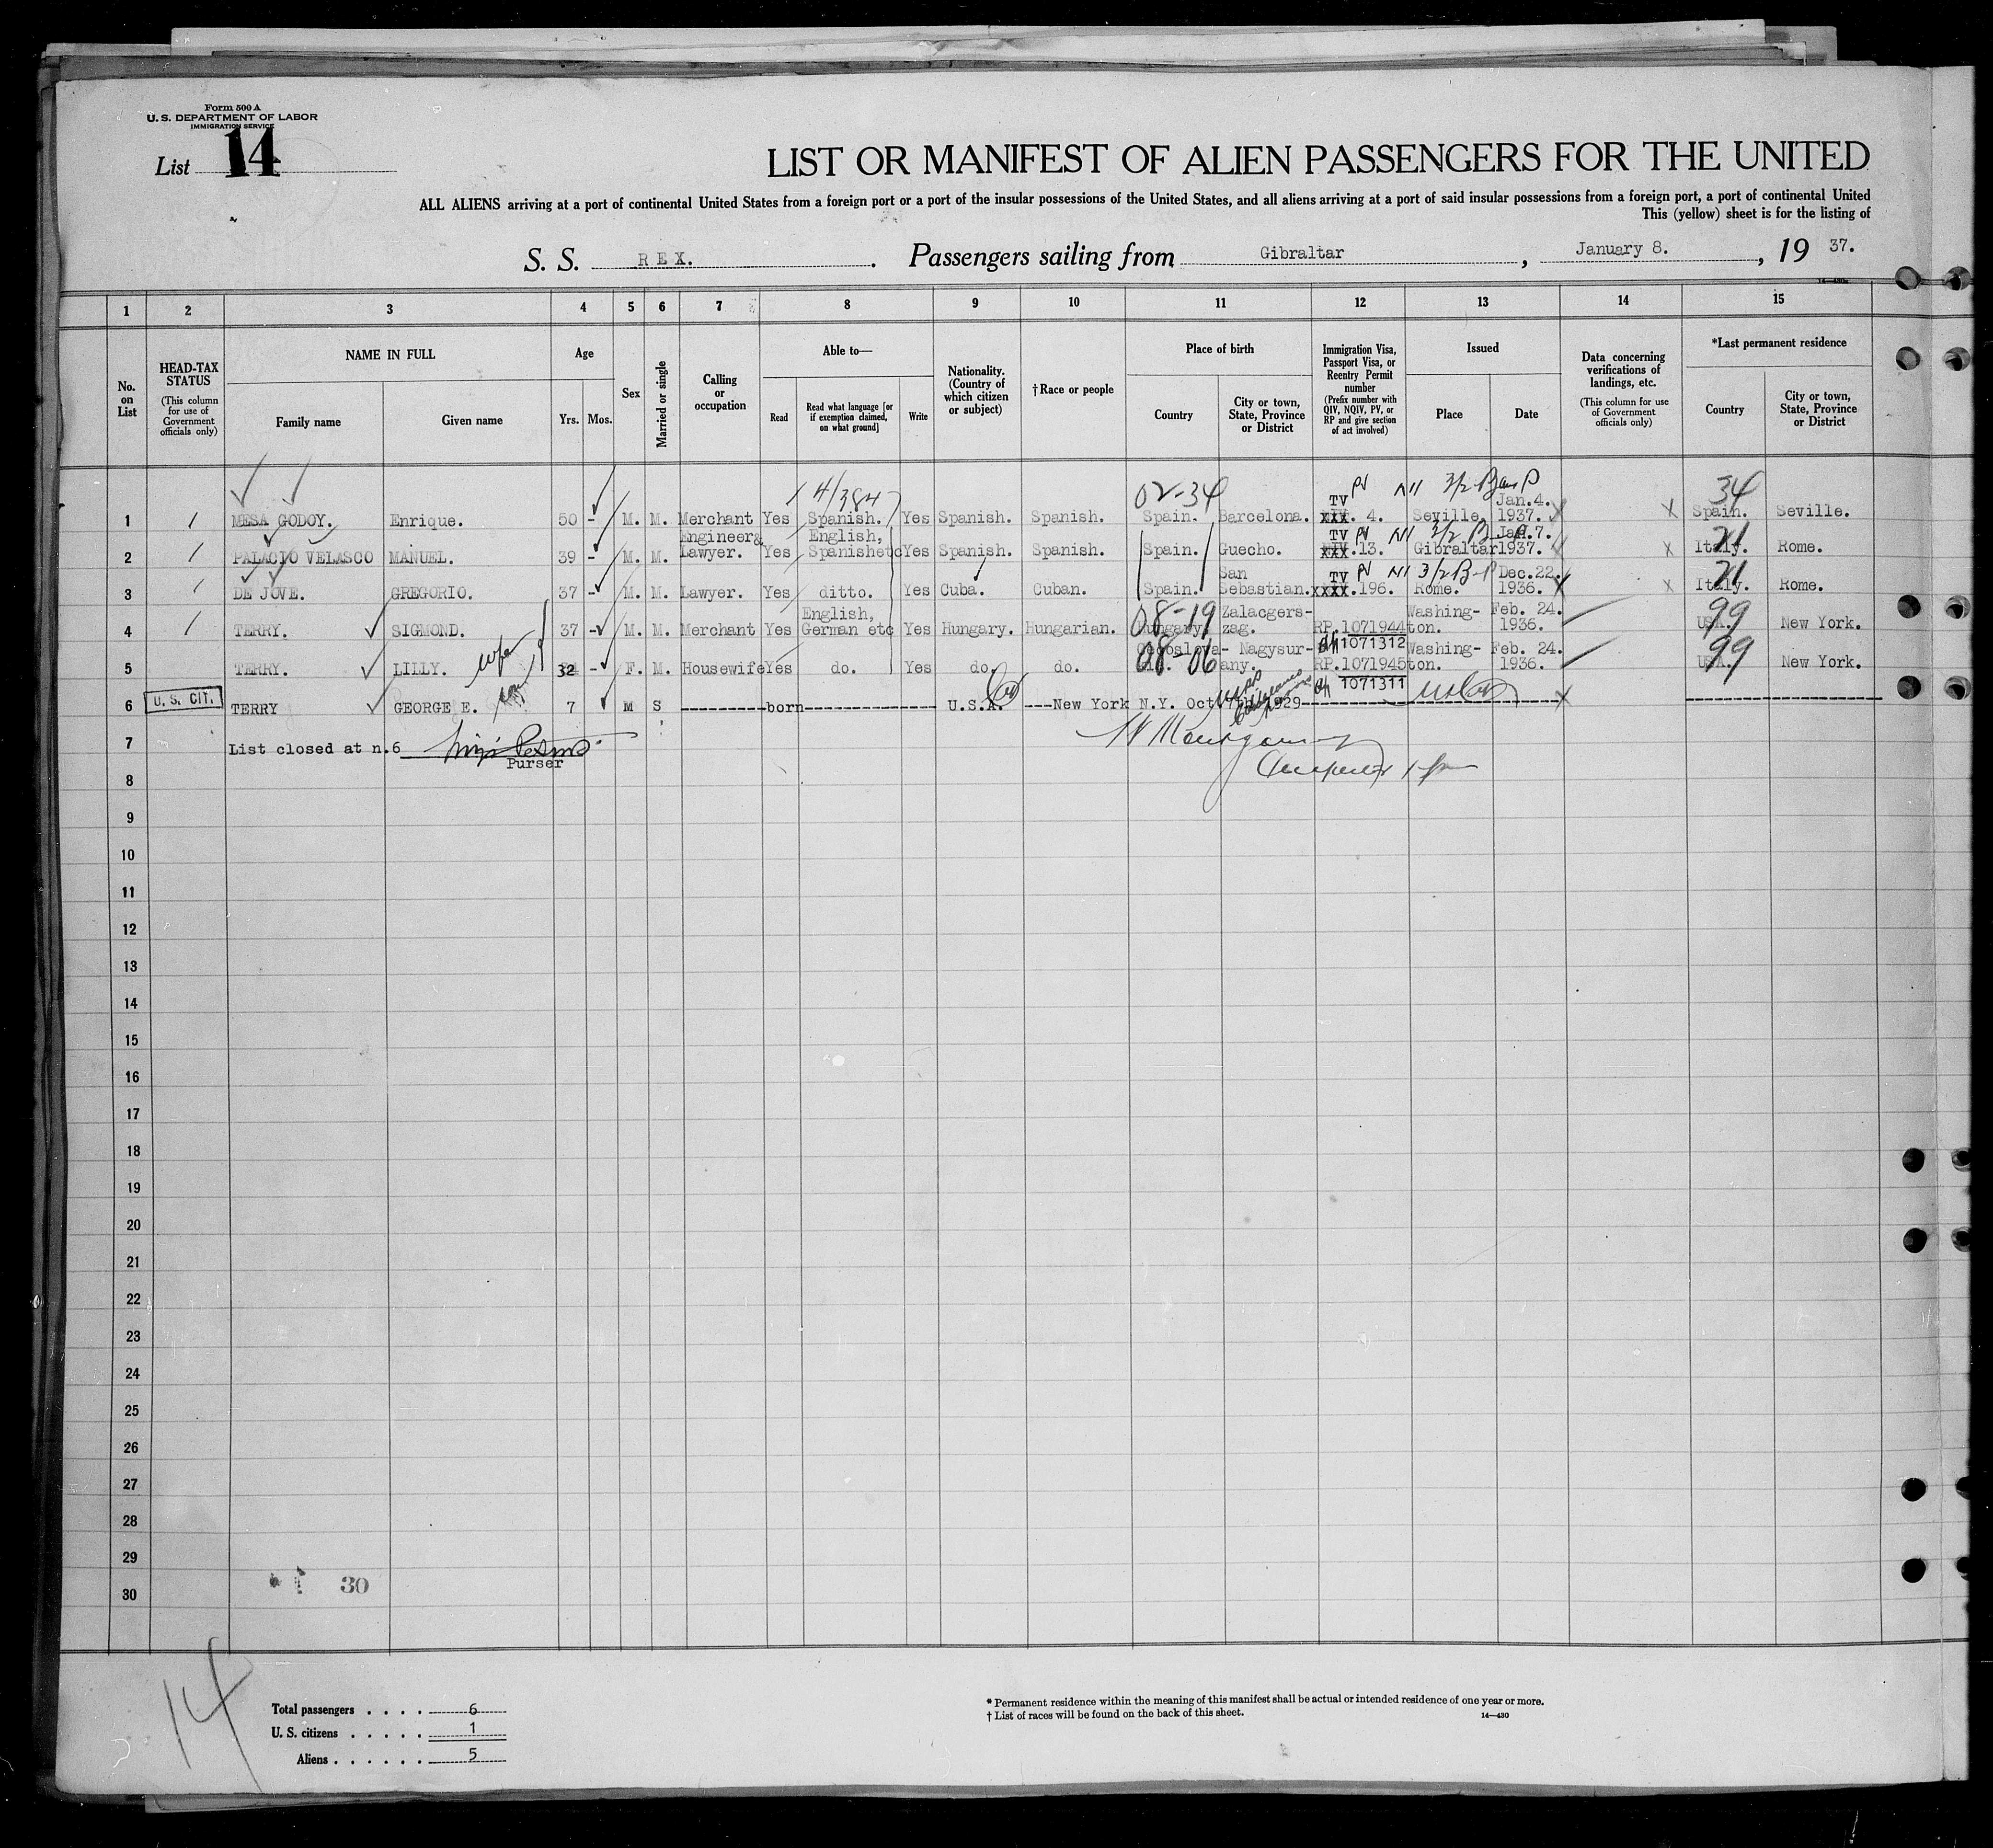 Form 500 A
U. S. DEPARTMENT OF LABOR
IMMIGRATION SERVICE
List 14
LIST OR MANIFEST OF ALIEN PASSENGERS FOR THE UNITED
ALL ALIENS arriving at a port of continental United States from a foreign port or a port of the insular possessions of the United States, and all aliens arriving at a port of said insular possessions from a foreign port, a port of continental United
This (yellow) sheet is for the listing of
S. S. REX. Passengers sailing from Gibraltar, January 8., 1937.
1 2 3 4 5 6 7 8 9 10 11 12 13 14 15
No. on List
HEAD-TAX STATUS (This column for use of Government officials only)
NAME IN FULL
Family name Given name
Age Yrs. Mos.
Sex
Married or single
Calling or occupation
Able to—
Read
Read what language [or if exemption claimed, on what ground]
Write
Nationality. (Country of which citizen or subject)
† Race or people
Place of birth
Country
City or town, State, Province or District
Immigration Visa, Passport Visa, or Reentry Permit number (Prefix number with QIV, NQIV, PV, or RP and give section of act involved)
Issued
Place Date
Data concerning verifications of landings, etc. (This column for use of Government officials only)
*Last permanent residence
Country
City or town, State, Province or District
14/384 02-34 PV 3/2 34
1 MESA GODOY. Enrique. 50 - M. M. Merchant Yes Spanish. Yes Spanish. Spanish. Spain. Barcelona. TV XXX. 4. Seville. Jan. 4. 1937. Spain. Seville.
PV 3/2 71
2 PALACIO VELASCO MANUEL. 39 - M. M. Engineer& Lawyer. Yes English, Spanishetc Yes Spanish. Spanish. Spain. Guecho. TV XXX.13. Gibraltar Jan.7. 1937. Italy. Rome.
PV 3/2 71
3 DE JOVE. GREGORIO. 37 - M. M. Lawyer. Yes ditto. Yes Cuba. Cuban. Spain. San Sebastian. TV XXXX.196. Rome. Dec.22. 1936. Italy. Rome.
08-19 99
4 TERRY. SIGMOND. 37 - M. M. Merchant Yes English, German etc Yes Hungary. Hungarian. Hungary. Zalacgers-zag. RP.1071944 Washing-ton. Feb. 24. 1936. USA. New York.
wife 08-06 1071312 99
5 TERRY. LILLY. 32 - F. M. Housewife Yes do. Yes do. do. Nagysur-any. RP.1071945 Washing-ton. Feb. 24. 1936. USA. New York.
son 1071311
U. S. CIT.
6 TERRY GEORGE E. 7 M S born U.S.A. New York N.Y. Oct 1929
7 List closed at n.6
Purser
8
9
10
11
12
13
14
15
16
17
18
19
20
21
22
23
24
25
26
27
28
29
30
30
14
Total passengers . . . . 6
U. S. citizens . . . . . 1
Aliens . . . . . . 5
* Permanent residence within the meaning of this manifest shall be actual or intended residence of one year or more.
† List of races will be found on the back of this sheet.
14—430